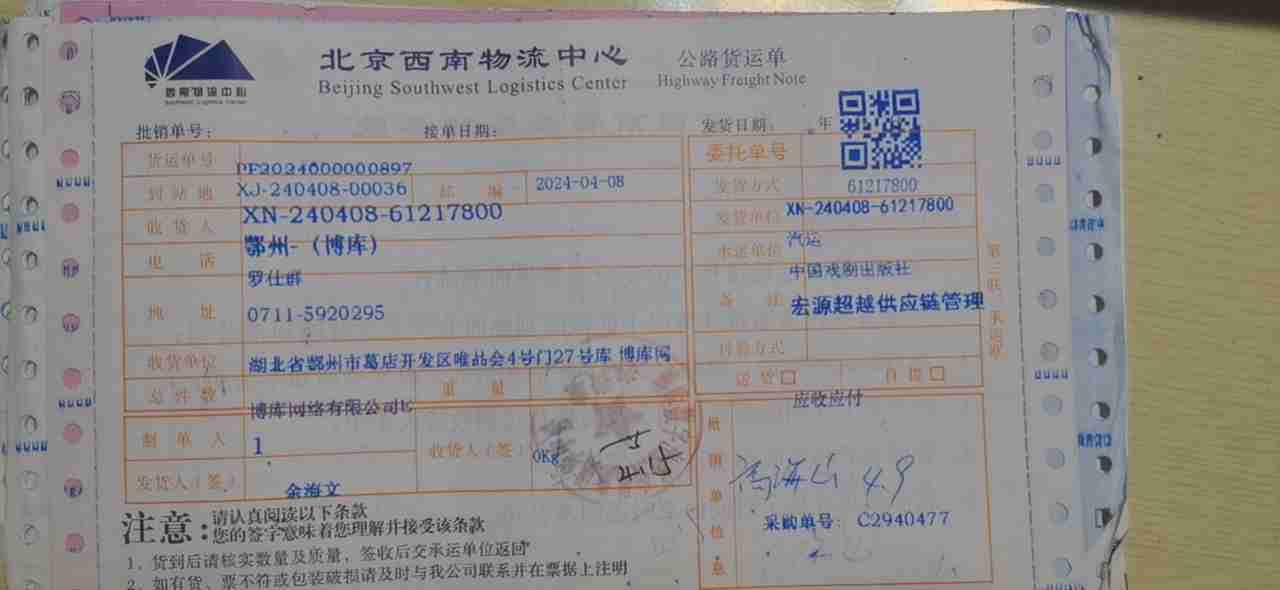 北京西南物流中心 公路货运单
Beijing Southwest Logistics Center Highway Freight Note
西南物流中心
Southwest Logistics Center
批销单号: 接单日期: 发货日期: 年
货运单号 PF2024000000897 委托单号
到站地 XJ-240408-00036 邮编 2024-04-08 发货方式 61217800
收货人 XN-240408-61217800 发货单位 XN-240408-61217800
电话 鄂州-(博库) 承运单位 汽运
罗仕群 中国戏剧出版社
地址 0711-5920295 备注 宏源超越供应链管理
收货单位 湖北省鄂州市葛店开发区唯品会4号门27号库 博库网 付款方式
总件数 重量 送货□ 自提□
博库网络有限公司 应收应付
制单人 1 收货人(签) 0Kg
发货人(签) 金海文
高海山 4.9
采购单号: C2940477
注意: 请认真阅读以下条款
您的签字意味着您理解并接受该条款
1、货到后请核实数量及质量，签收后交承运单位返回
2、如有货、票不符或包装破损请及时与我公司联系并在票据上注明